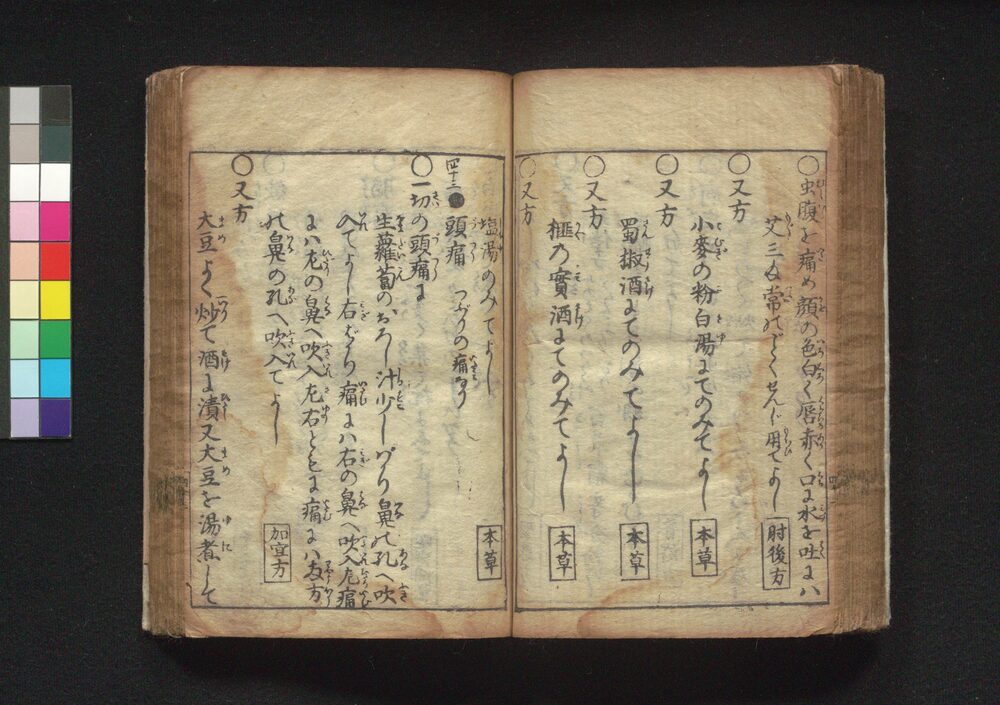 ○虫腹を痛め顔の色白く唇赤く口に水を吐には
艾三匁常のごとくせんじ用てよし 肘後方
○又方
小麥の粉白湯にてのみてよし 本草
○又方
蜀椒酒にてのみてよし 本草
○又方
榧乃實酒にてのみてよし 本草
○又方
塩湯のみてよし 本草
四十三●頭痛 つぶりの痛なり
○一切の頭痛に
生蘿蔔のおろし汁少しばかり鼻の孔へ吹
入てよし右ばかり痛には右の鼻へ吹入左痛
には左の鼻へ吹入左右ともに痛には両方
の鼻の孔へ吹入てよし 加宜方
○又方
大豆よく炒て酒に漬又大豆を湯煮して